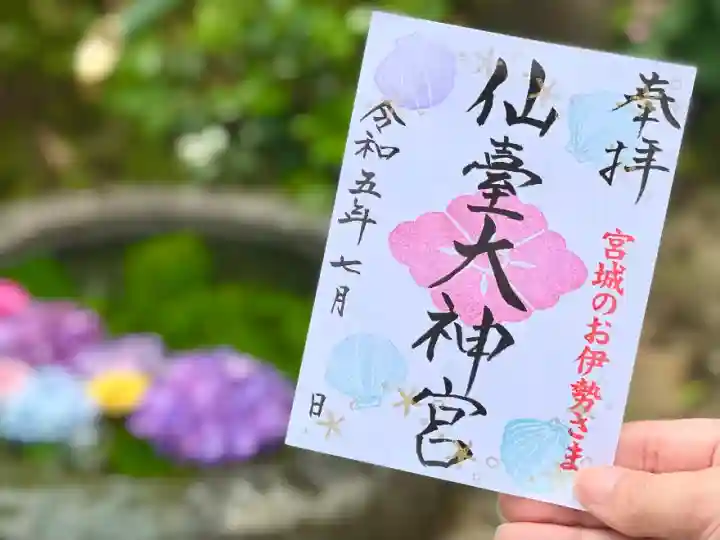 奉拝
宮城のお伊勢さま
仙臺大神宮
令和五年七月
日